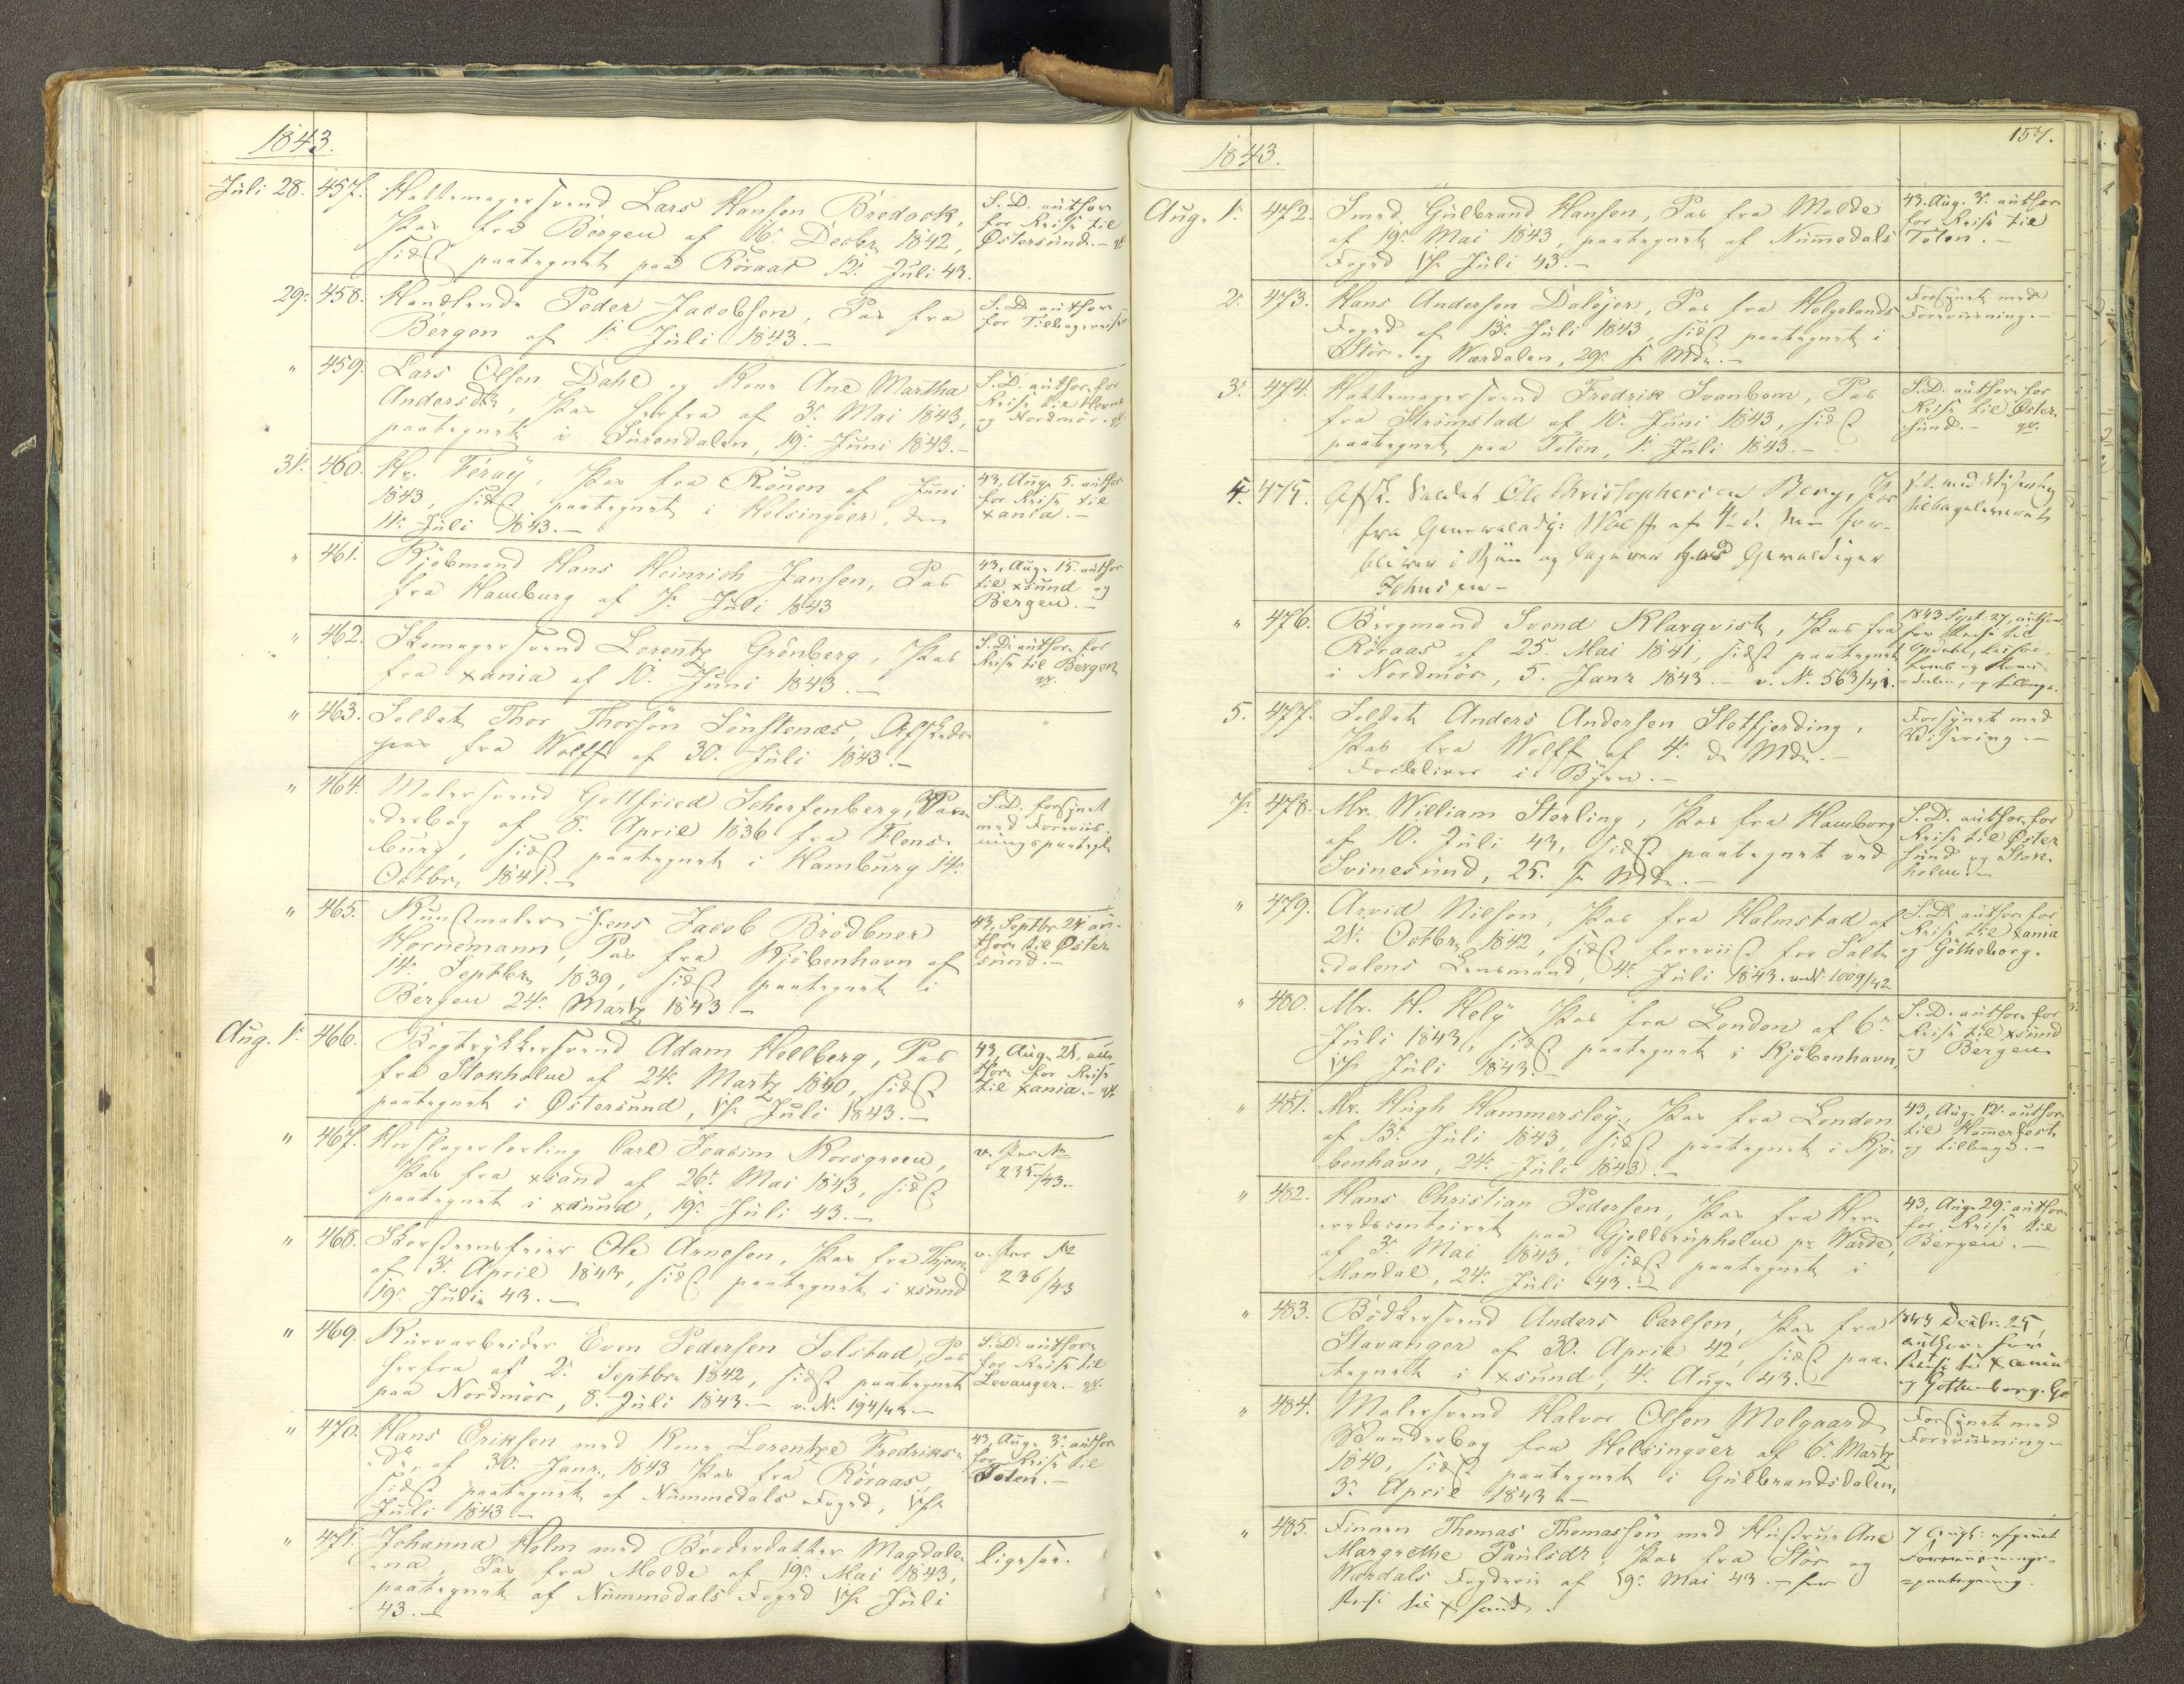 1843.
Juli 28. 457. Hattemagersvend Lars Hansen Bredock,
Pas fra Bergen af 16. Decbr 1842,
sidst paategnet paa Röraas 12. Juli 43.
S. D. author
for Reise til
Östersund.-
29. 458. Handlende Peder Jacobsen, Pas fra
Bergen af 1. Juli 1843.-
S. D. author
for Tilbagereise
" 459. Lars Olsen Dahl og Kone Ane Martha
Andersdtr, Pas herfra af 3. Mai 1843,
paategnet i Surendalen, 19. Juni 1843.-
S. D. author. for
Reise til
og Nordmör.
31. 460. Hr. Feray, Pas fra Rouen af Juni
1843, sidst paategnet i Helsingöer, den
11. Juli 1843.-
43, Aug. 5. author
for Reise til
xania.-
" 461. Kjöbmand Hans Heinrich Jansen, Pas
fra Hamburg af 7. Juli 1843
43, Aug. 15. author
til xsund og
Bergen.-
" 462. Skomagersvend Lorentz Grönberg, Pas
fra xania af 10. Juni 1843.-
S. D. author. for
Reise til Bergen
" 463. Soldat Thor Thorsön Sönstenæs, Afskeds
pas fra Wolff af 30. Juli 1843.-
" 464. Malersvend Gottfried Scherfenberg, Van-
derbog af 8. April 1836 fra Flens-
burg, sidst paategnet i Hamburg 14.
Octbr. 1841.-
S. D. forsynet
med Foreviis-
ningspaategn
" 465. Kunstmaler Jens Jacob Brödbner
Hornemann, Pas fra Kjöbenhavn af
14. Septbr. 1839, sidst paategnet i
Bergen 24. Martz 1843.-
43, Septbr 21 au-
thor. til Öster
sund.-
Aug. 1. 466. Bogtrykkersvend Adam Hellberg, Pas
fra Stokholm af 24. Martz 1840, sidst
paategnet i Östersund, 17. Juli 1843.-
43, Aug. 21, au-
thor. for Reise
til xania.-
" 467. Hovslagerlærling Carl Joacim Korsgreen,
Pas fra xsand af 26. Mai 1843, sidst
paategnet i xsund, 19. Juli 43.-
v. Jur No
235/43.
" 468. Skorsteensfeier Ole Arnesen, Pas fra
af 3. April 1843, sidst paategnet i xsund
19. Juli 43.-
v. Jur No
236/43
" 469. Kurvarbeider Even Pedersen Selstad, Pas
herfra af 2. Septbr. 1842, sidst paategnet
paa Nordmör, 8. Juli 1843.- v. N. 194/43.-
S. D. author.
for Reise til
Levanger.-
" 470. Hans Eriksen med Kone Lorentze Fredriks-
dr, af 30. Janr. 1843 Pas fra Röraas,
sidst paategnet af Nummedals Foged, 17.
Juli 1843.-
43, Aug. 3. author
for Reise til
Toten.-
" 471. Johanna Holm med Broderdatter Magdale-
na, Pas fra Molde af 19. Mai 1843,
paategnet af Nummedals Foged 17. Juli
43.-
ligesaa.
157.
1843.
Aug. 1. 472. Smed Gulbrand Hansen, Pas fra Molde
af 19. Mai 1843, paategnet af Nummedals
Foged 17. Juli 43.-
43. Aug. 3. author
for Reise til
Toten.-
2. 473. Hans Andersen Dolöjen, Pas fra Helgelands
Foged af 13. Juli 1843, sidst paategnet i
Stör- og Wærdalen, 29. f. Md.-
Forsynet med
Foreviisning.-
3. 474. Hattemagersvend Fredrik Svanbom, Pas
fra Strömstad af 10. Juni 1843, sidst
paategnet paa Toten, 1. Juli 1843.-
S. D. author. for
Reise til Öster-
sund.-
4. 475. Afsk. Soldat Ole Christophersen Berg, Pas
fra Generaladj: Wolff af 4. d. M- for-
bliver i Byen og logerer hos Gevaldiger
Johnsen-
tilbageleveret
" 476. Bergmand Svend Klarqvist, Pas fra
Röraas af 25. Mai 1841, sidst paategnet
i Nordmör, 5. Janr 1843.- v. N. 563/41.
1843 Sept. 27, author
for Reise til
5. 477. Soldat Anders Andersen Sletfjerding,
Pas fra Wolff af 4. d. Md.-
Forbliver i Byen.-
Forsynet med
Visering.-
7. 478. Mr. William Sterling, Pas fra Hamborg
af 10. Juli 43, sidst paategnet ved
Svinesund, 25. f. Md.-
S. D. author. for
Reise til Öster
sund og Stok-
holm.-
" 479. Arvid Nilson, Pas fra Halmstad af
21. Octbr. 1842, sidst foreviist for Salt-
dalens Lensmand, 4. Juli 1843. 1009/42
S. D. author. for
Reise til xania
og Götheborg.
" 480. Mr. H. Hely Pas fra London af 6.
Juli 1843, sidst paategnet i Kjöbenhavn,
17. Juli 1843.-
S. D. author. for
Reise til xsund
og Bergen
" 481. Mr. Hugh Hammersley, Pas fra London
af 13. Juli 1843, sidst paategnet i Kjö-
benhavn, 24. Juli 1843.-
43, Aug. 12. author.
til Hammerfest
og tilbage.-
" 482. Hans Christian Pedersen, Pas fra Her-
redscontoiret paa Gjellerupholm pr. Warde,
af 3. Mai 1843, sidst paategnet i
Mandal, 24. Juli 43.-
43, Aug. 29. author.
for Reise til
Bergen.-
" 483. Bödkersvend Anders Carlsen, Pas fra
Stavanger af 30. April 42, sidst paa-
tegnet i xsund, 4. Aug. 43.-
1843 Decbr. 25,
author. for
Reise til xania
og Gottenborg.
" 484. Malersvend Halvor Olsen Melgaard
Vanderbog fra Helsingöer af 6. Martz
1840, sidst paategnet i Gulbrandsdalen,
3. April 1843.-
Forsynet med
Foreviisning-
" 485. Finnen Thomas Thomassön med Hustrue Ane
Margrethe Paulsdr, Pas fra Stör og
Wærdals Fogderie af 19. Mai 43.- for
Reise til xsund.
Foreviisnings-
paategning.